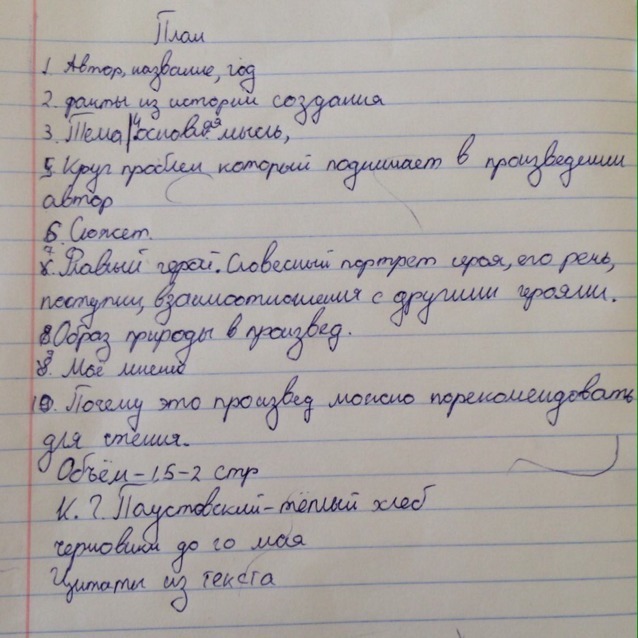 План
1. Автор, название, год
2. факты из истории создания
3. Тема 4 основная мысль,
5. Круг проблем который поднимает в произведении
автор
6. Сюжет.
7. Главный герой. Словесный портрет героя, его речь,
поступки, взаимоотношения с другими героями.
8. Образ природы в произвед.
9. Моё мнение
10. Почему это произвед можно порекомендовать
для чтения.
Объём - 1.5-2 стр
К. Г. Паустовский - тёплый хлеб
черновики до 10 мая
Цитаты из текста